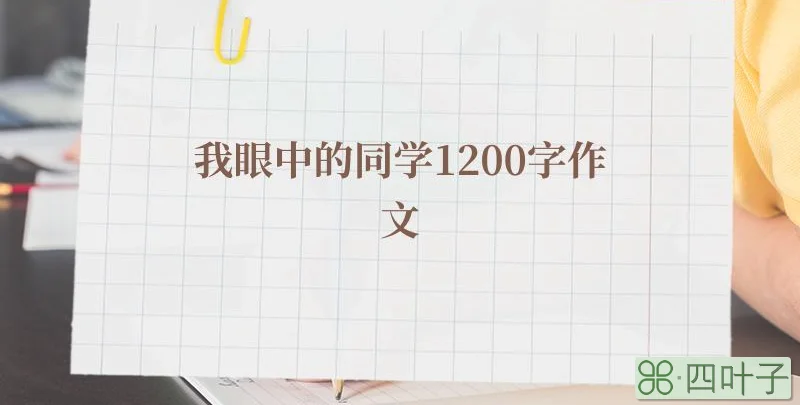 我眼中的同学1200字作
文
四叶子